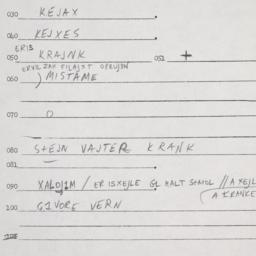 030 KEJAX
040 KEJXES
ERIS
050 KRAJNK 051 +
ERVIL ZAK FILAJXT OPRUJEN
060 ) MISTAME
070
080 STEJN VAJTER KRANK
081
090 XALOJIM / ER ISXEJLE GL HALT // A XEJL
( A KRANKE
100 GIVORE VERN